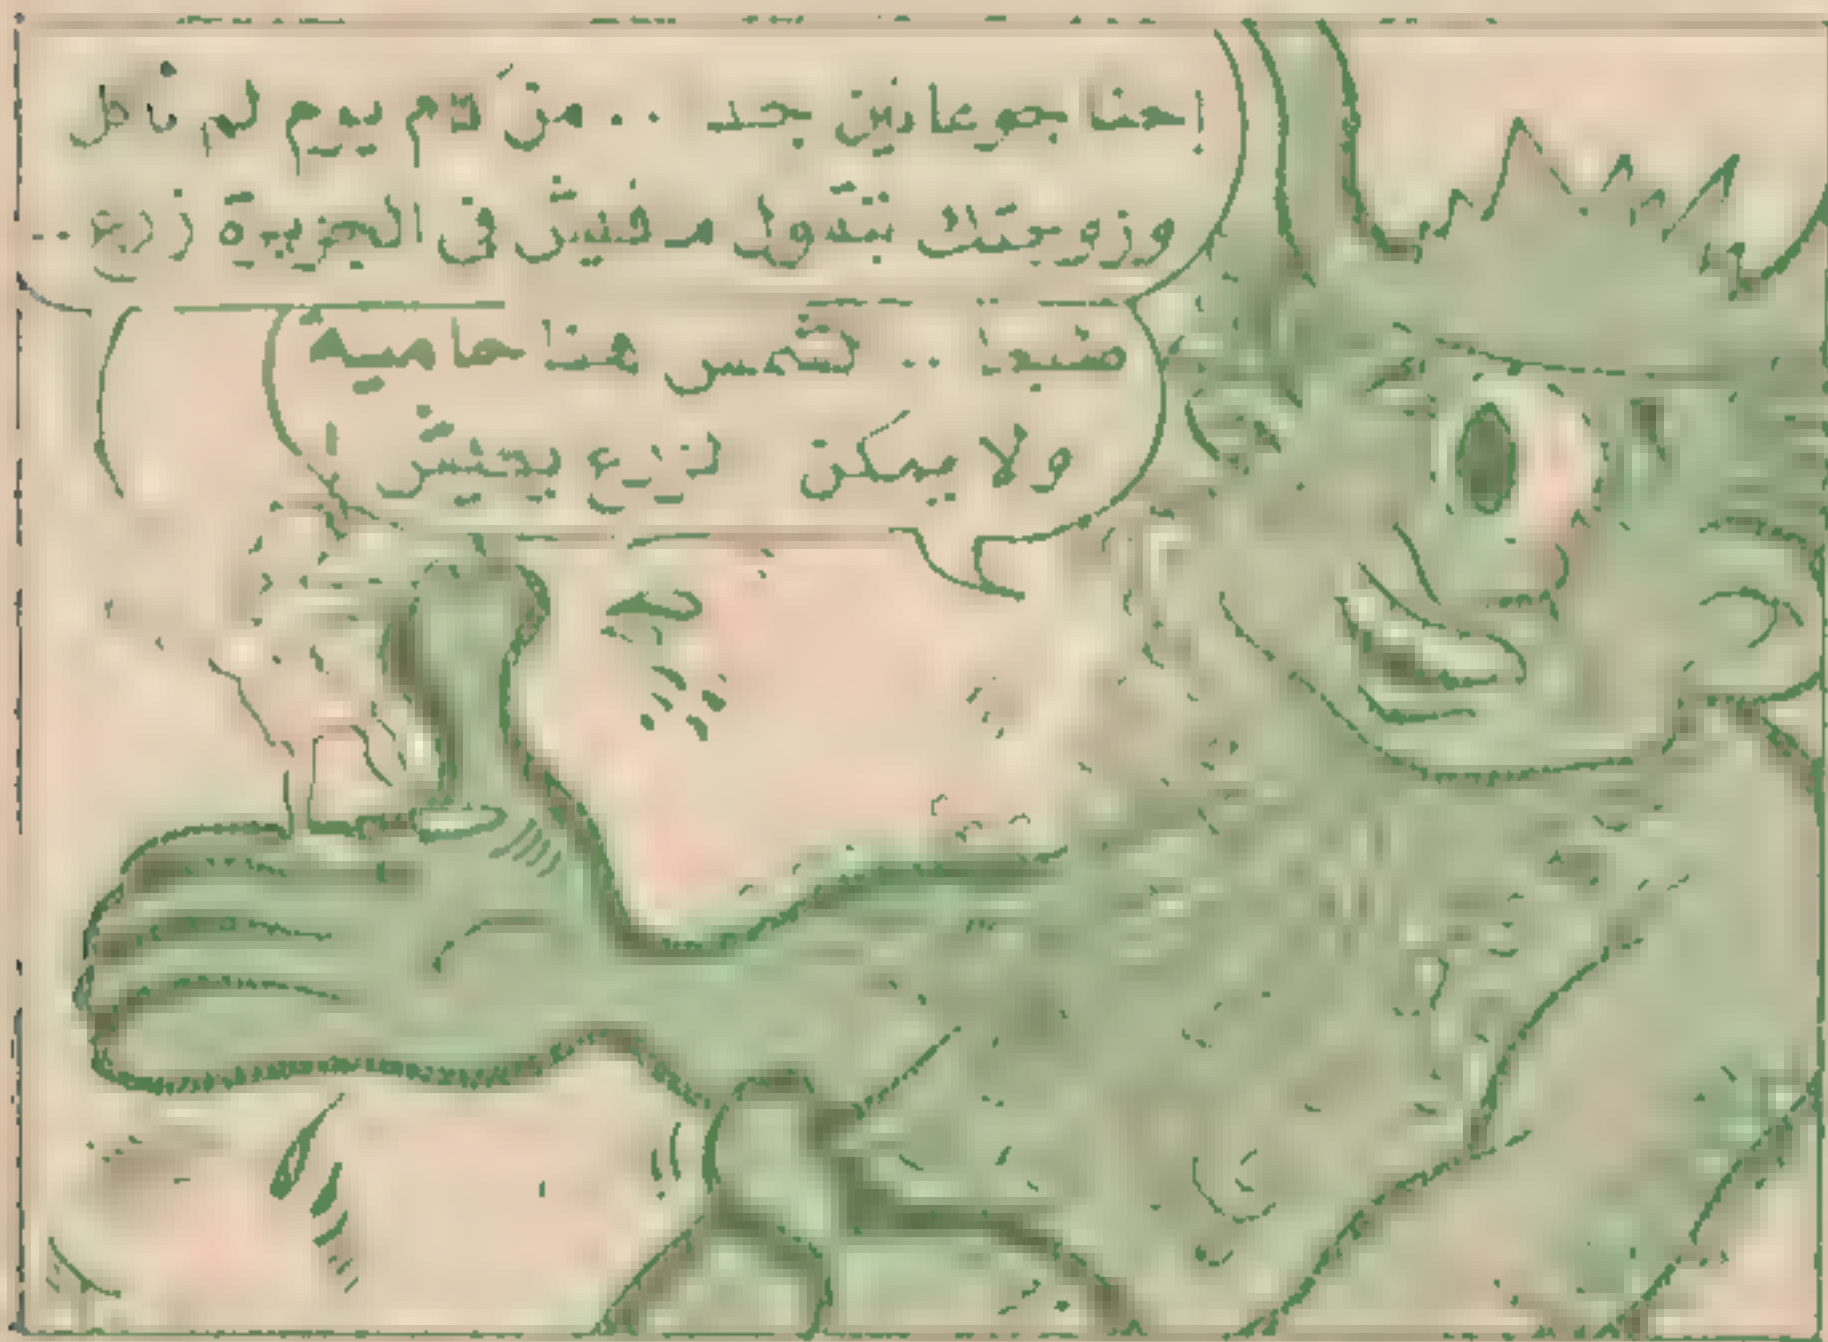 احنا جوعانين جد .. من كم يوم لم نأكل
وزوجتك بتقول مفيش في الجزيرة زرع ..
طبعا .. لشمس هنا حاميه
ولا يمكن لزرع يعيش !